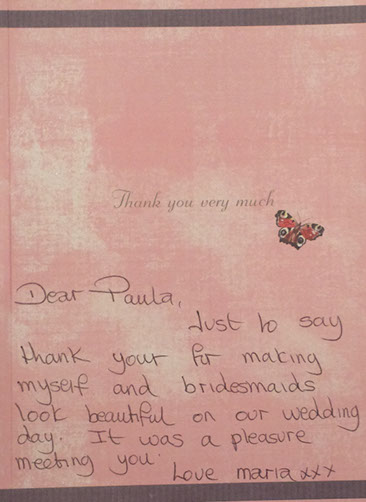 Thank you very much
Dear Paula,
Just to say
thank your for making
myself and bridesmaids
look beautiful on our wedding
day. It was a pleasure
meeting you.
Love maria xxx